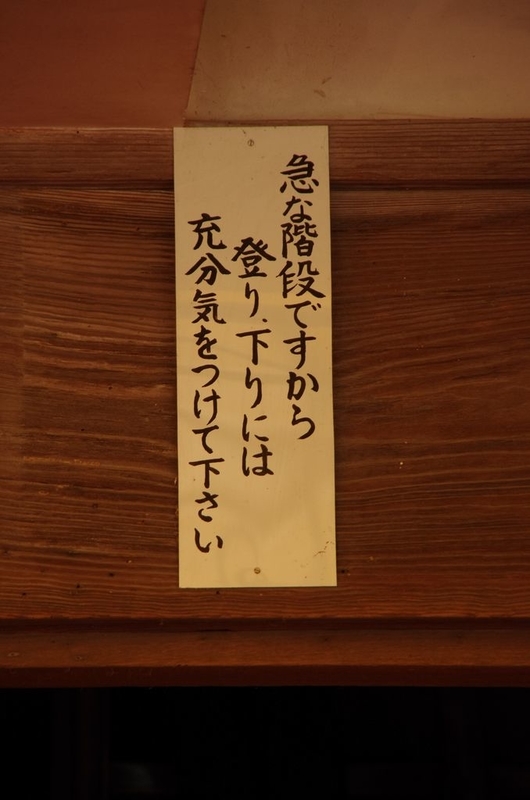 急な階段ですから
登り、下りには
充分気をつけて下さい